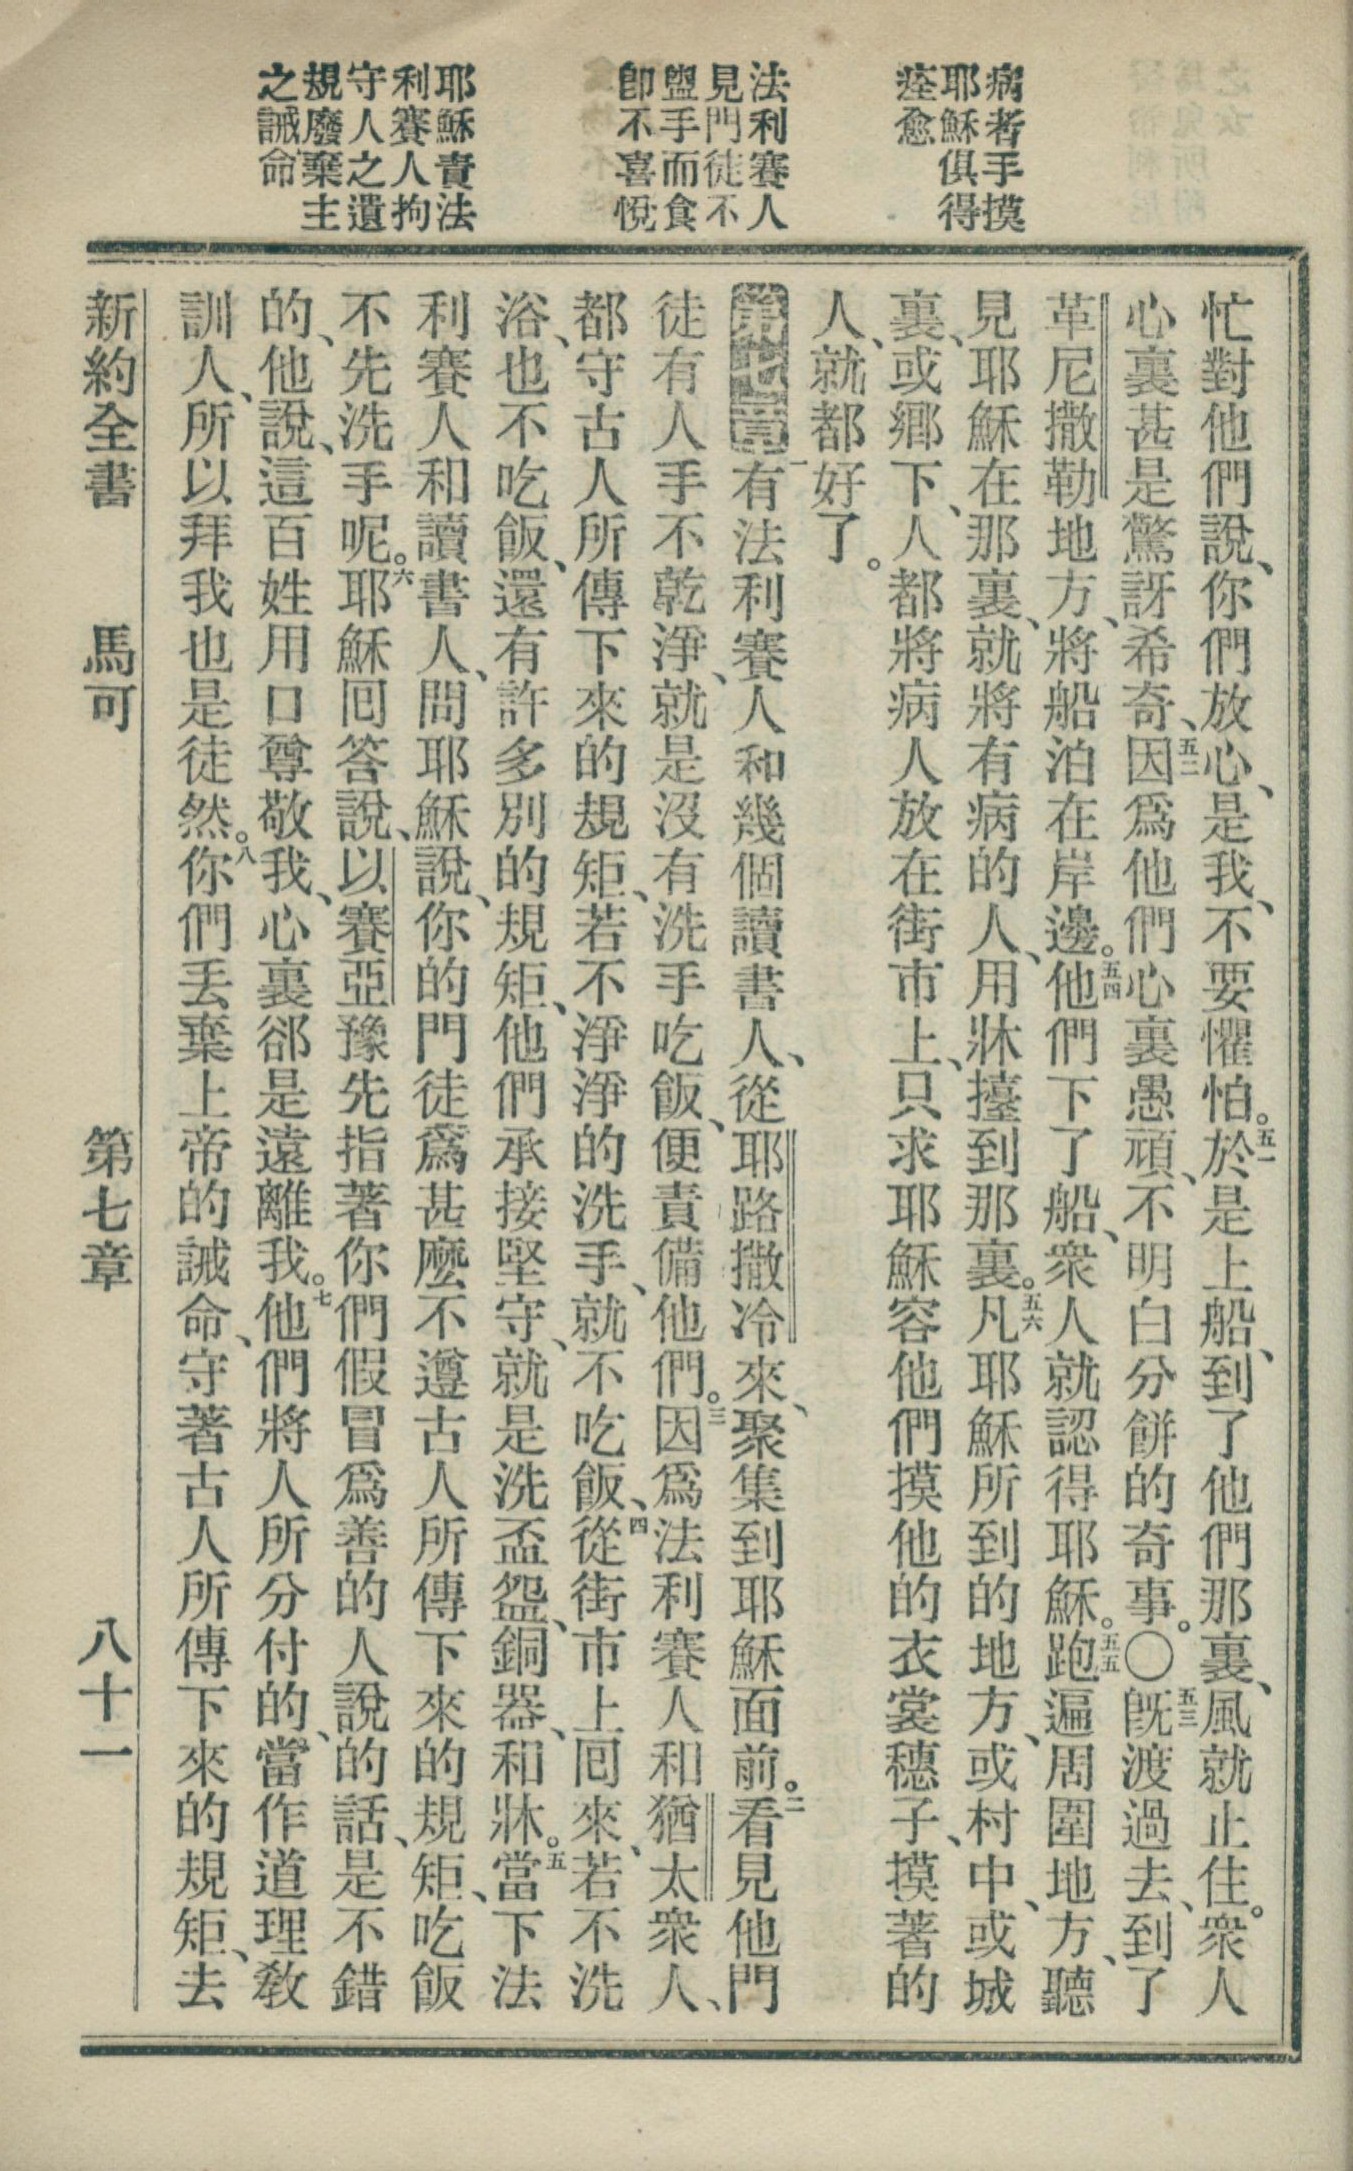 病者手摸
耶穌俱得
痊愈
法利賽人
見門徒不
盥手而食
卽不喜悅
耶穌責法
利賽人拘
守人之遺
規廢棄主
之誡命
忙對他們說、你們放心、是我、不要懼怕。五一於是上船、到了他們那裏、風就止住。衆人
心裏甚是驚訝希奇、五二因爲他們心裏愚頑、不明白分餅的奇事。〇五三旣渡過去、到了
革尼撒勒地方、將船泊在岸邊。五四他們下了船、衆人就認得耶穌。五五跑遍周圍地方、聽
見耶穌在那裏、就將有病的人、用牀擡到那裏。五六凡耶穌所到的地方、或村中、或城
裏、或鄉下、人都將病人放在街市上、只求耶穌容他們摸他的衣裳穗子、摸著的
人、就都好了。
第七章一有法利賽人和幾個讀書人、從耶路撒冷來、聚集到耶穌面前。二看見他門
徒有人手不乾淨、就是沒有洗手吃飯、便責備他們。三因爲法利賽人和猶太衆人、
都守古人所傳下來的規矩、若不淨淨的洗手、就不吃飯、四從街市上囘來、若不洗
浴、也不吃飯、還有許多別的規矩、他們承接堅守、就是洗盃盌、銅器、和牀。五當下法
利賽人和讀書人、問耶穌說、你的門徒爲甚麼不遵古人所傳下來的規矩、吃飯
不先洗手呢。六耶穌囘答說、以賽亞豫先指著你們假冒爲善的人說的話、是不錯
的、他說、這百姓用口尊敬我、心裏郤是遠離我。七他們將人所分付的、當作道理敎
訓人、所以拜我也是徒然。八你們丟棄上帝的誡命、守著古人所傳下來的規矩、去
新約全書　馬可　第七章　八十一